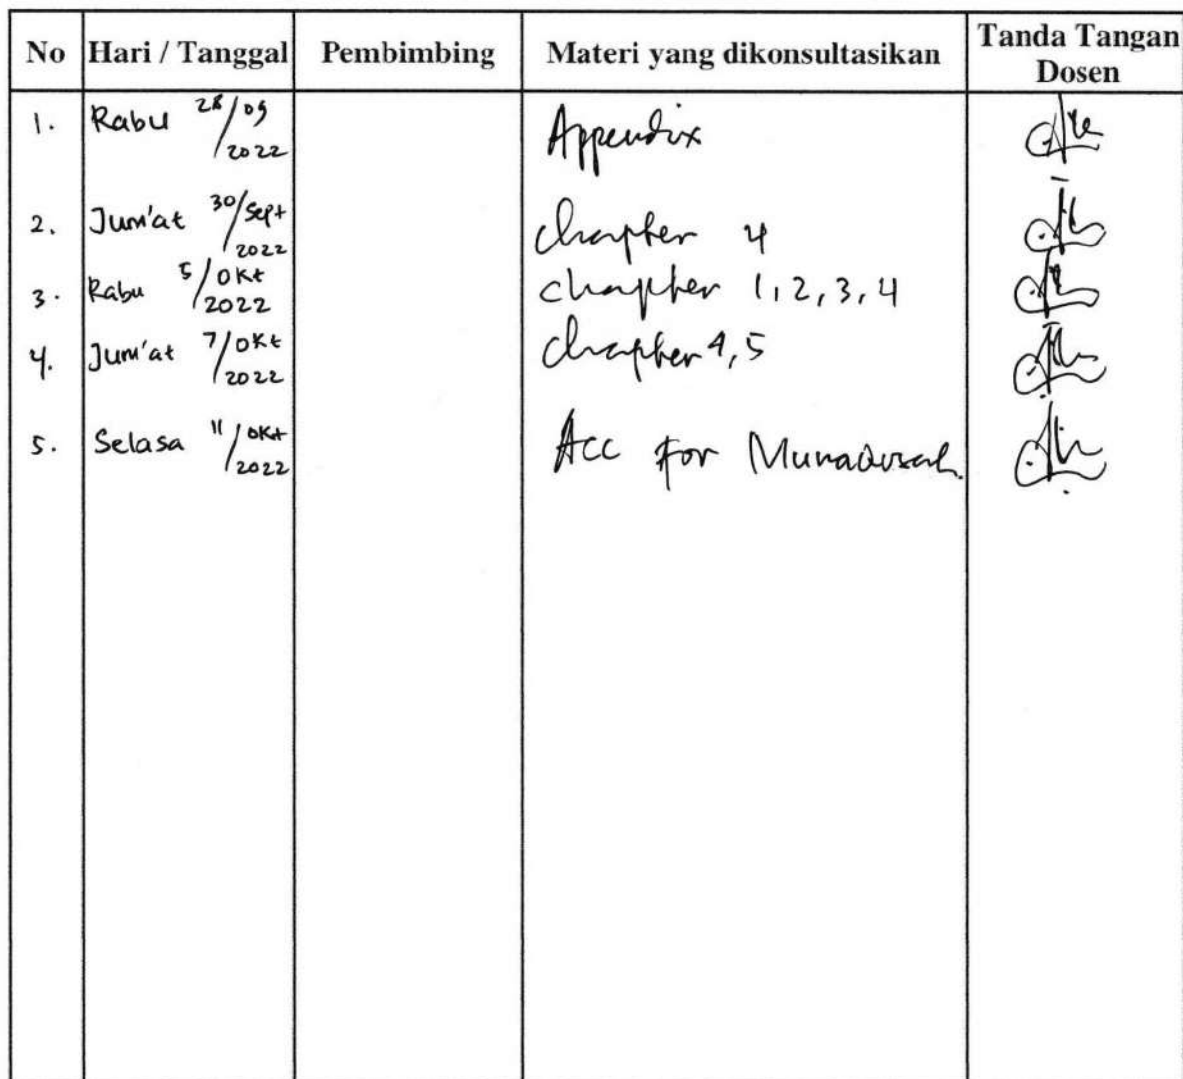 No Hari / Tanggal Pembimbing Materi yang dikonsultasikan Tanda Tangan Dosen
1. Rabu 28/09 2022 Appendix
2. Jum'at 30/Sept 2022 Chapter 4
3. Rabu 5/Okt 2022 chapter 1, 2, 3, 4
4. Jum'at 7/Okt 2022 Chapter 4, 5
5. Selasa 11/Okt 2022 Acc for Munaqosah